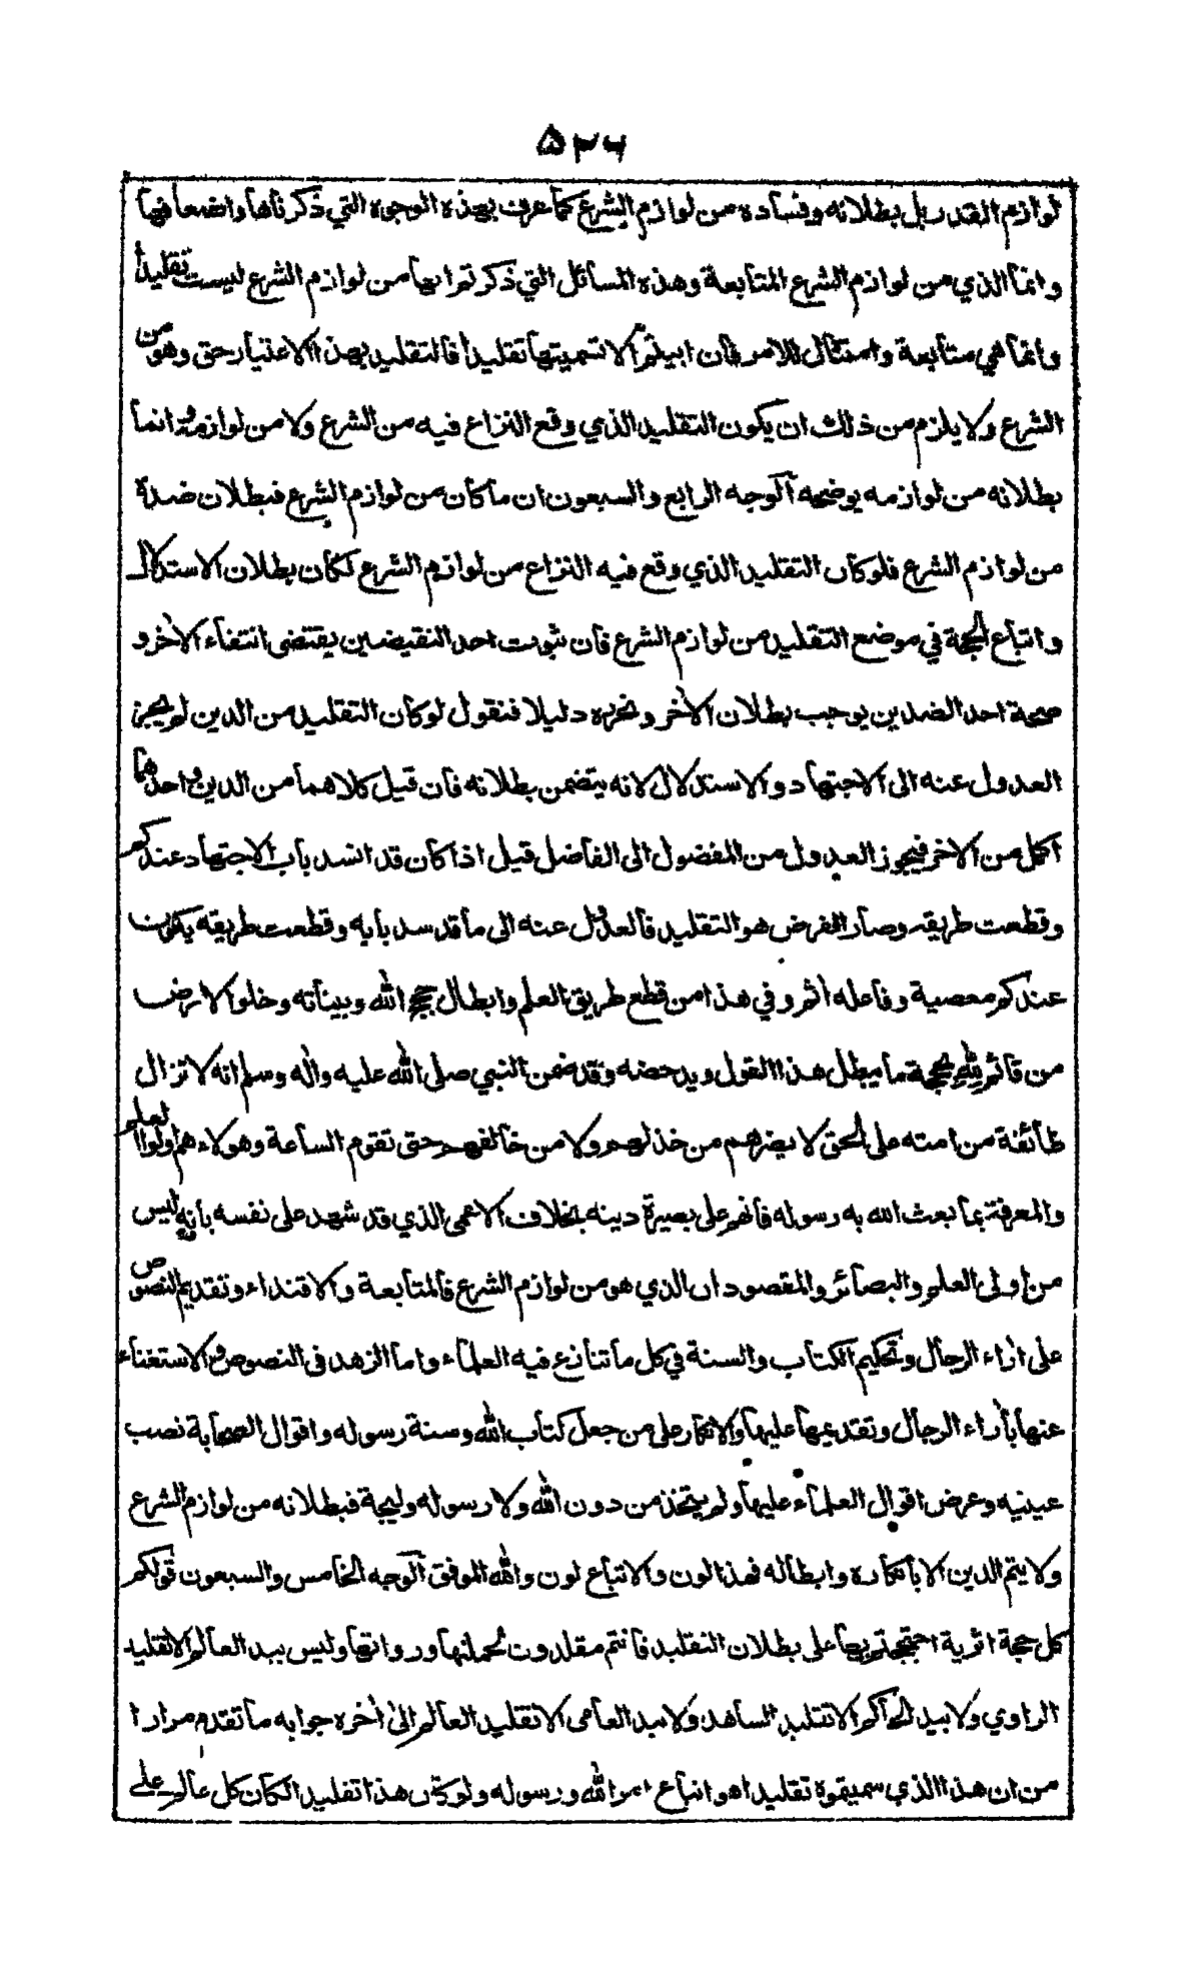 ٥٢٦
لوازم القدر بل بطلانه وفساده من لوازم الشرع كما عرف بهذه الوجوه التي ذكرناها واضعافها
وانما الذي من لوازم الشرع المتابعة وهذه المسائل التي ذكرتم انها من لوازم الشرع ليست تقليدا
وانما هي متابعة وامتثال للامر فان ابيتم الا تسميتها تقليدا فالتقليد بهذا الاعتبار حق وهو من
الشرع ولا يلزم من ذلك ان يكون التقليد الذي وقع النزاع فيه من الشرع ولا من لوازمه وانما
بطلانه من لوازمه يوضحه الوجه الرابع والسبعون ان ما كان من لوازم الشرع فبطلان ضدة
من لوازم الشرع فلو كان التقليد الذي وقع فيه النزاع من لوازم الشرع لكان بطلان الاستدلال
واتباع الحجة في موضع التقليد من لوازم الشرع فان ثبوت احد النقيضين يقتضى انتفاء الاخر و
صحة احد الضدين يوجب بطلان الاخر ونحرره دليلا فنقول لو كان التقليد من الدين لم يجز
العدول عنه الى الاجتهاد والاستدلال لانه يتضمن بطلانه فان قيل كلاهما من الدين واحدهما
اكمل من الاخر فيجوز العدول من المفضول الى الفاضل قيل اذا كان قد انسد باب الاجتهاد عندكم
وقطعت طريقه وصار الفرض هو التقليد فالعدول عنه الى ما قد سد بابه وقطعت طريقه يكون
عندكم معصية وفاعله اثم وفي هذا من قطع طريق العلم وابطال حجج الله وبيناته وخلو الارض
من قائم لله بحججه ما يبطل هذا القول ويدحضه وقد ضمن النبي صلى الله عليه واله وسلم انه لا تزال
طائفة من امته على الحق لا يضرهم من خذلهم ولا من خالفهم حتى تقوم الساعة وهولاء هم اولوا العلم
والمعرفة بما بعث الله به رسوله فانهم على بصيرة دينه بخلاف الاعمى الذي قد شهد على نفسه بانه ليس
من اولى العلم والبصائر والمقصود ان الذي هو من لوازم الشرع فالمتابعة والاقتداء وتقديم النصوص
على اراء الرجال وتحكيم الكتاب والسنة في كل ما تنازع فيه العلماء واما الزهد فى النصوص والاستغناء
عنها باراء الرجال وتقديمها عليها والانكار على من جعل كتاب الله وسنة رسوله واقوال الصحابة نصب
عينيه وعرض اقوال العلماء عليها ولم يتخذ من دون الله ولا رسوله وليجة فبطلانه من لوازم الشرع
ولا يتم الدين الا بانكاره وابطاله فهذا لون والاتباع لون والله الموفق الوجه الخامس والسبعون قولكم
كل حجة اثرية احتججتم بها على بطلان التقليد فانتم مقلدون لحملتها ورواتها وليس بيد العالم الا تقليد
الراوي ولا بيد الحاكم الا تقليد الشاهد ولا بيد العامى الا تقليد العالم الى اخره جوابه ما تقدم مرارا
من ان هذا الذي سميتموه تقليدا هو اتباع امر الله ورسوله ولو كان هذا تقليدا لكان كل عالم على